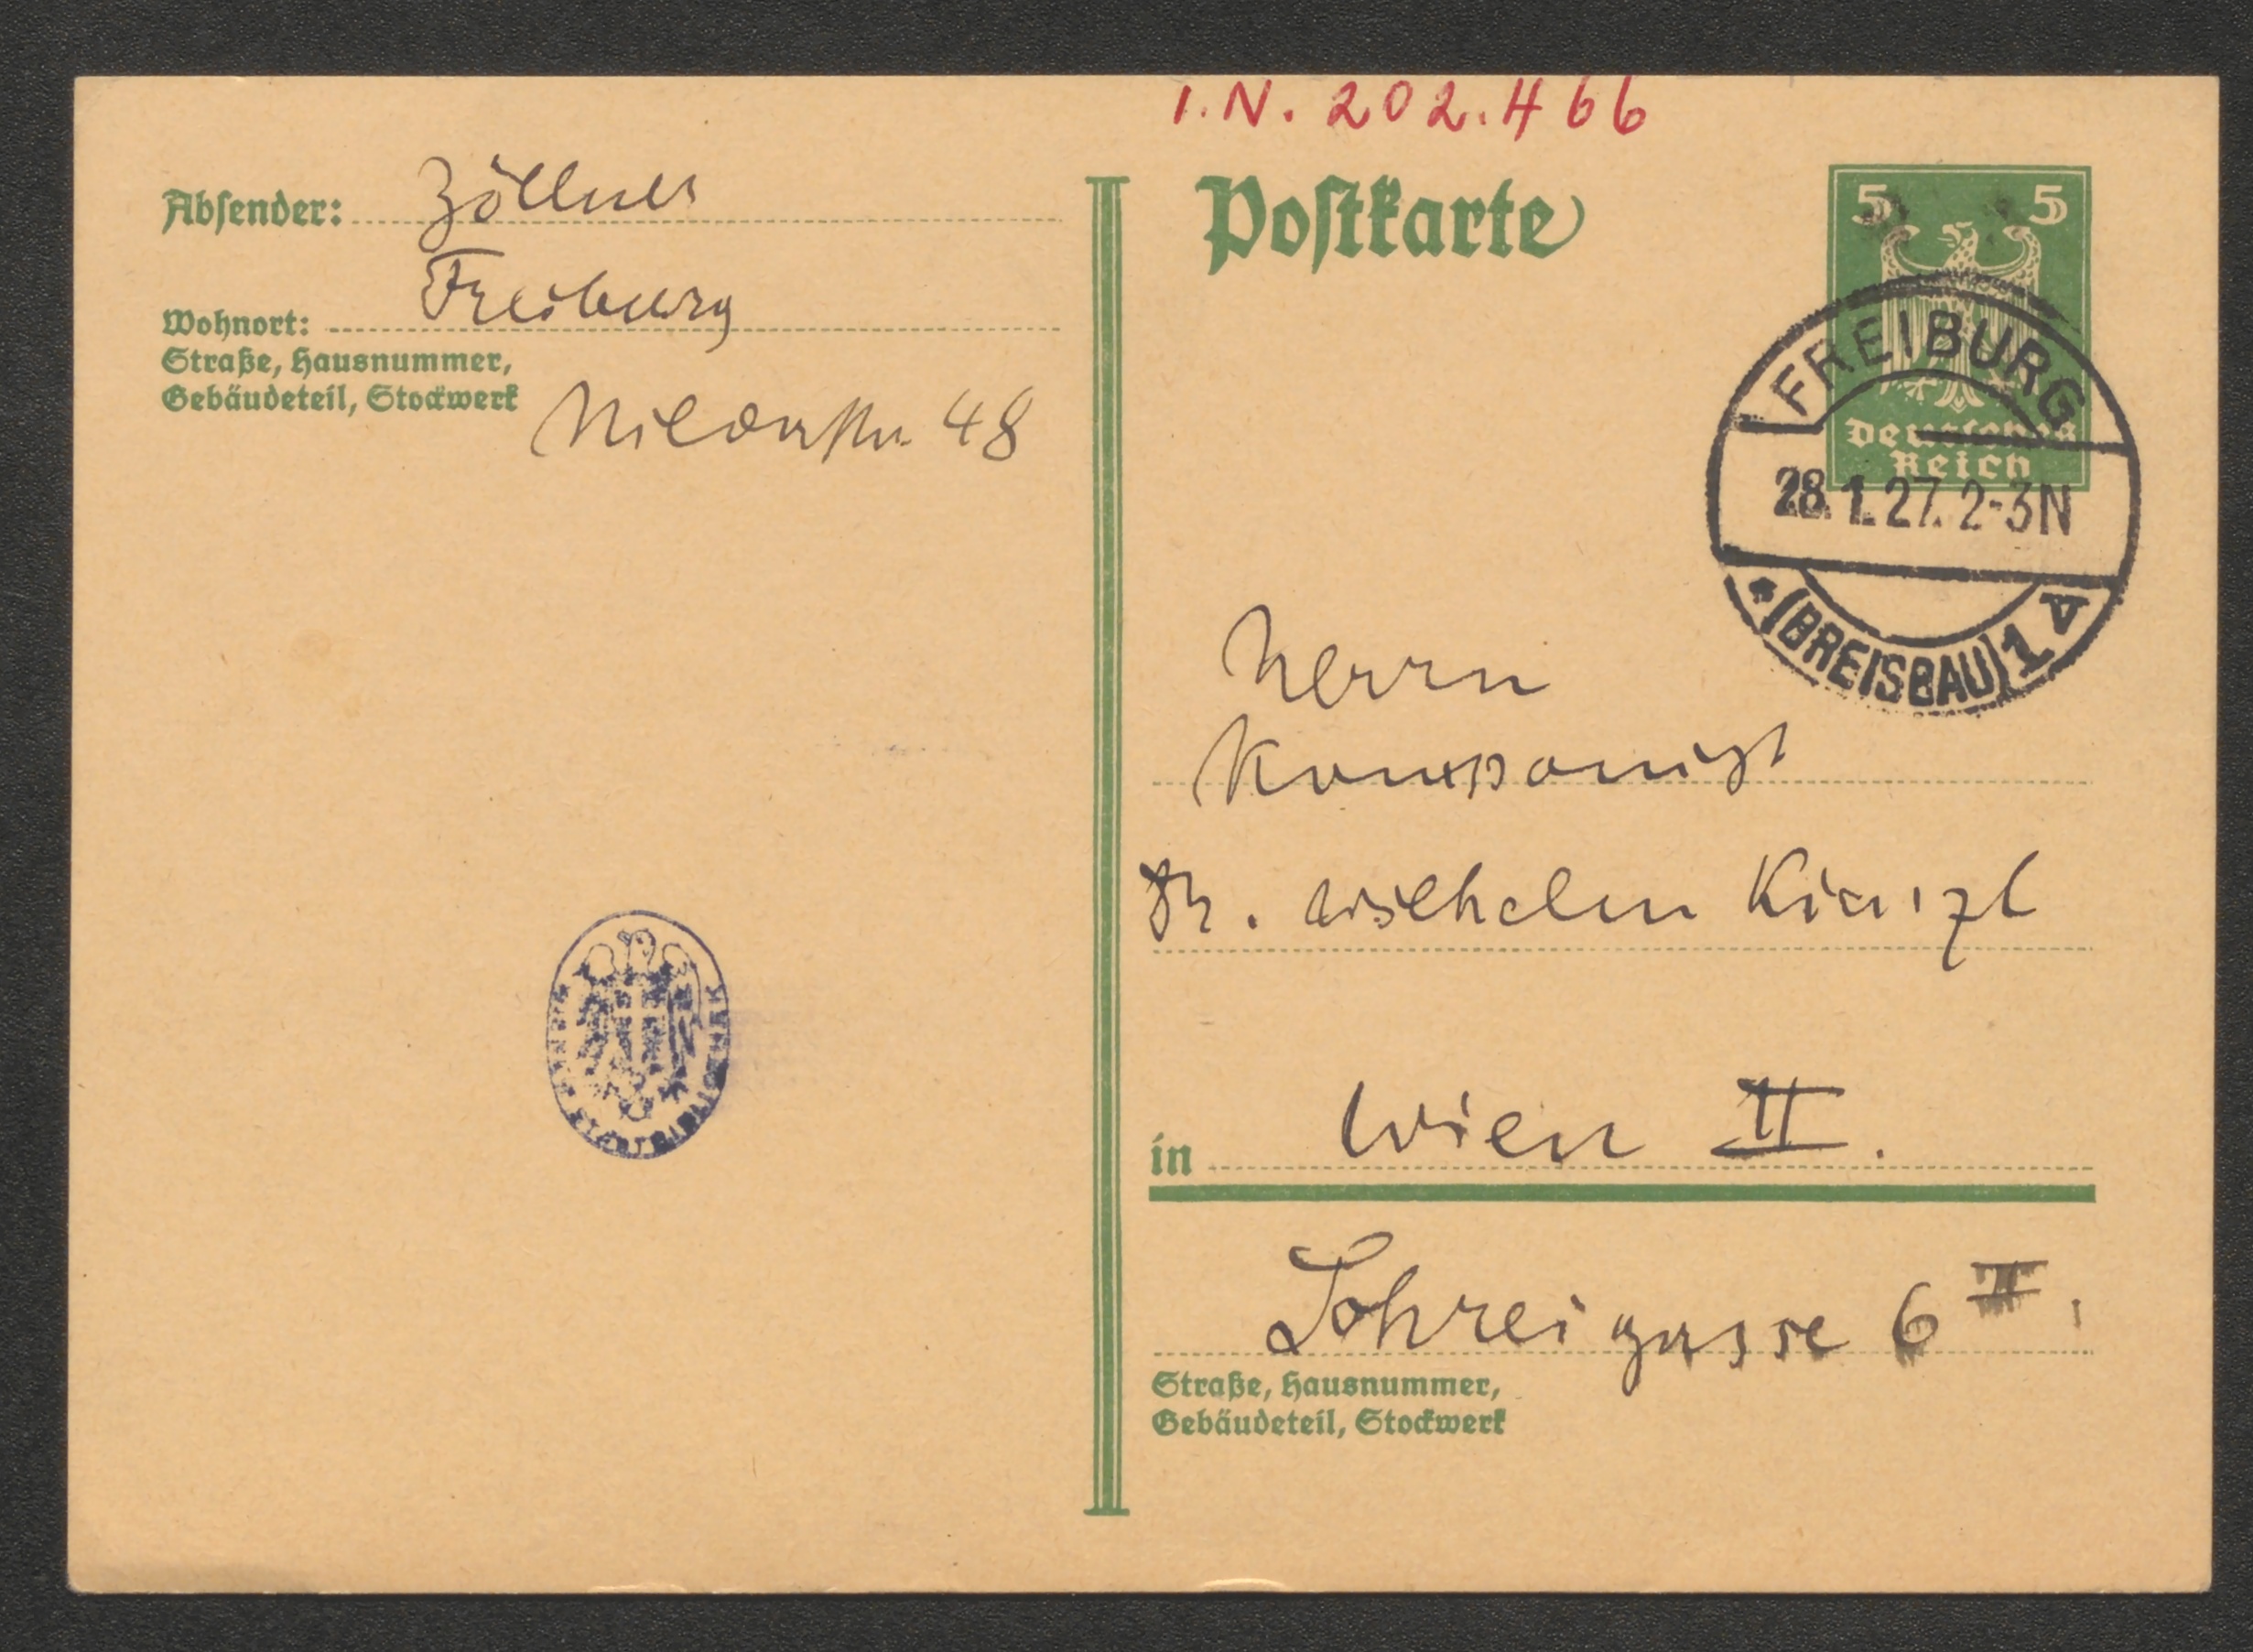 I.N. 202.466
Absender: Zöllner
Wohnort: Freiburg
Straße, Hausnummer,
Gebäudeteil, Stockwerk
48
Postkarte
5 5
Deutsches
Reich
FREIBURG
28.1.27. 2-3N
* (BREISGAU) 1 A
Herrn
Komponist
Dr. Wilhelm Kienzl
in Wien II.
Schreigasse 6 II.
Straße, Hausnummer,
Gebäudeteil, Stockwerk